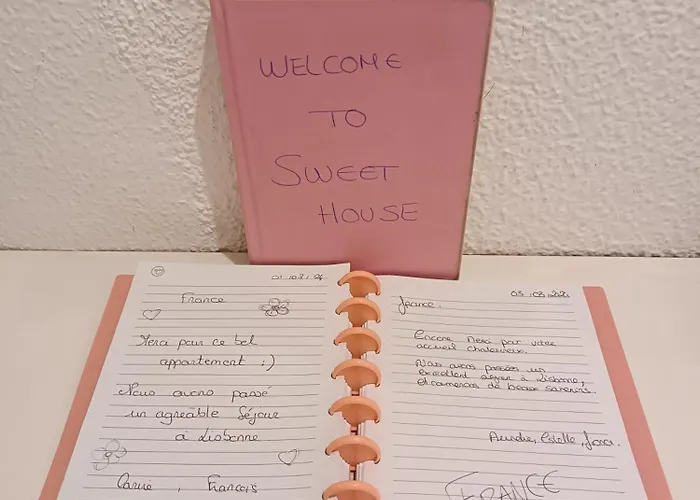 WELCOME
TO
SWEET
HOUSE
France
Merci pour ce bel
appartement :)
Nous avons passé
un agréable séjour
à Lisbonne
Carrie, François
France.
Encore Merci par votre
accueil chaleureux.
Nous avons passés un
excellent séjour à Lisbonne,
et de beaux
Aurelie, Estelle,
FRANCE